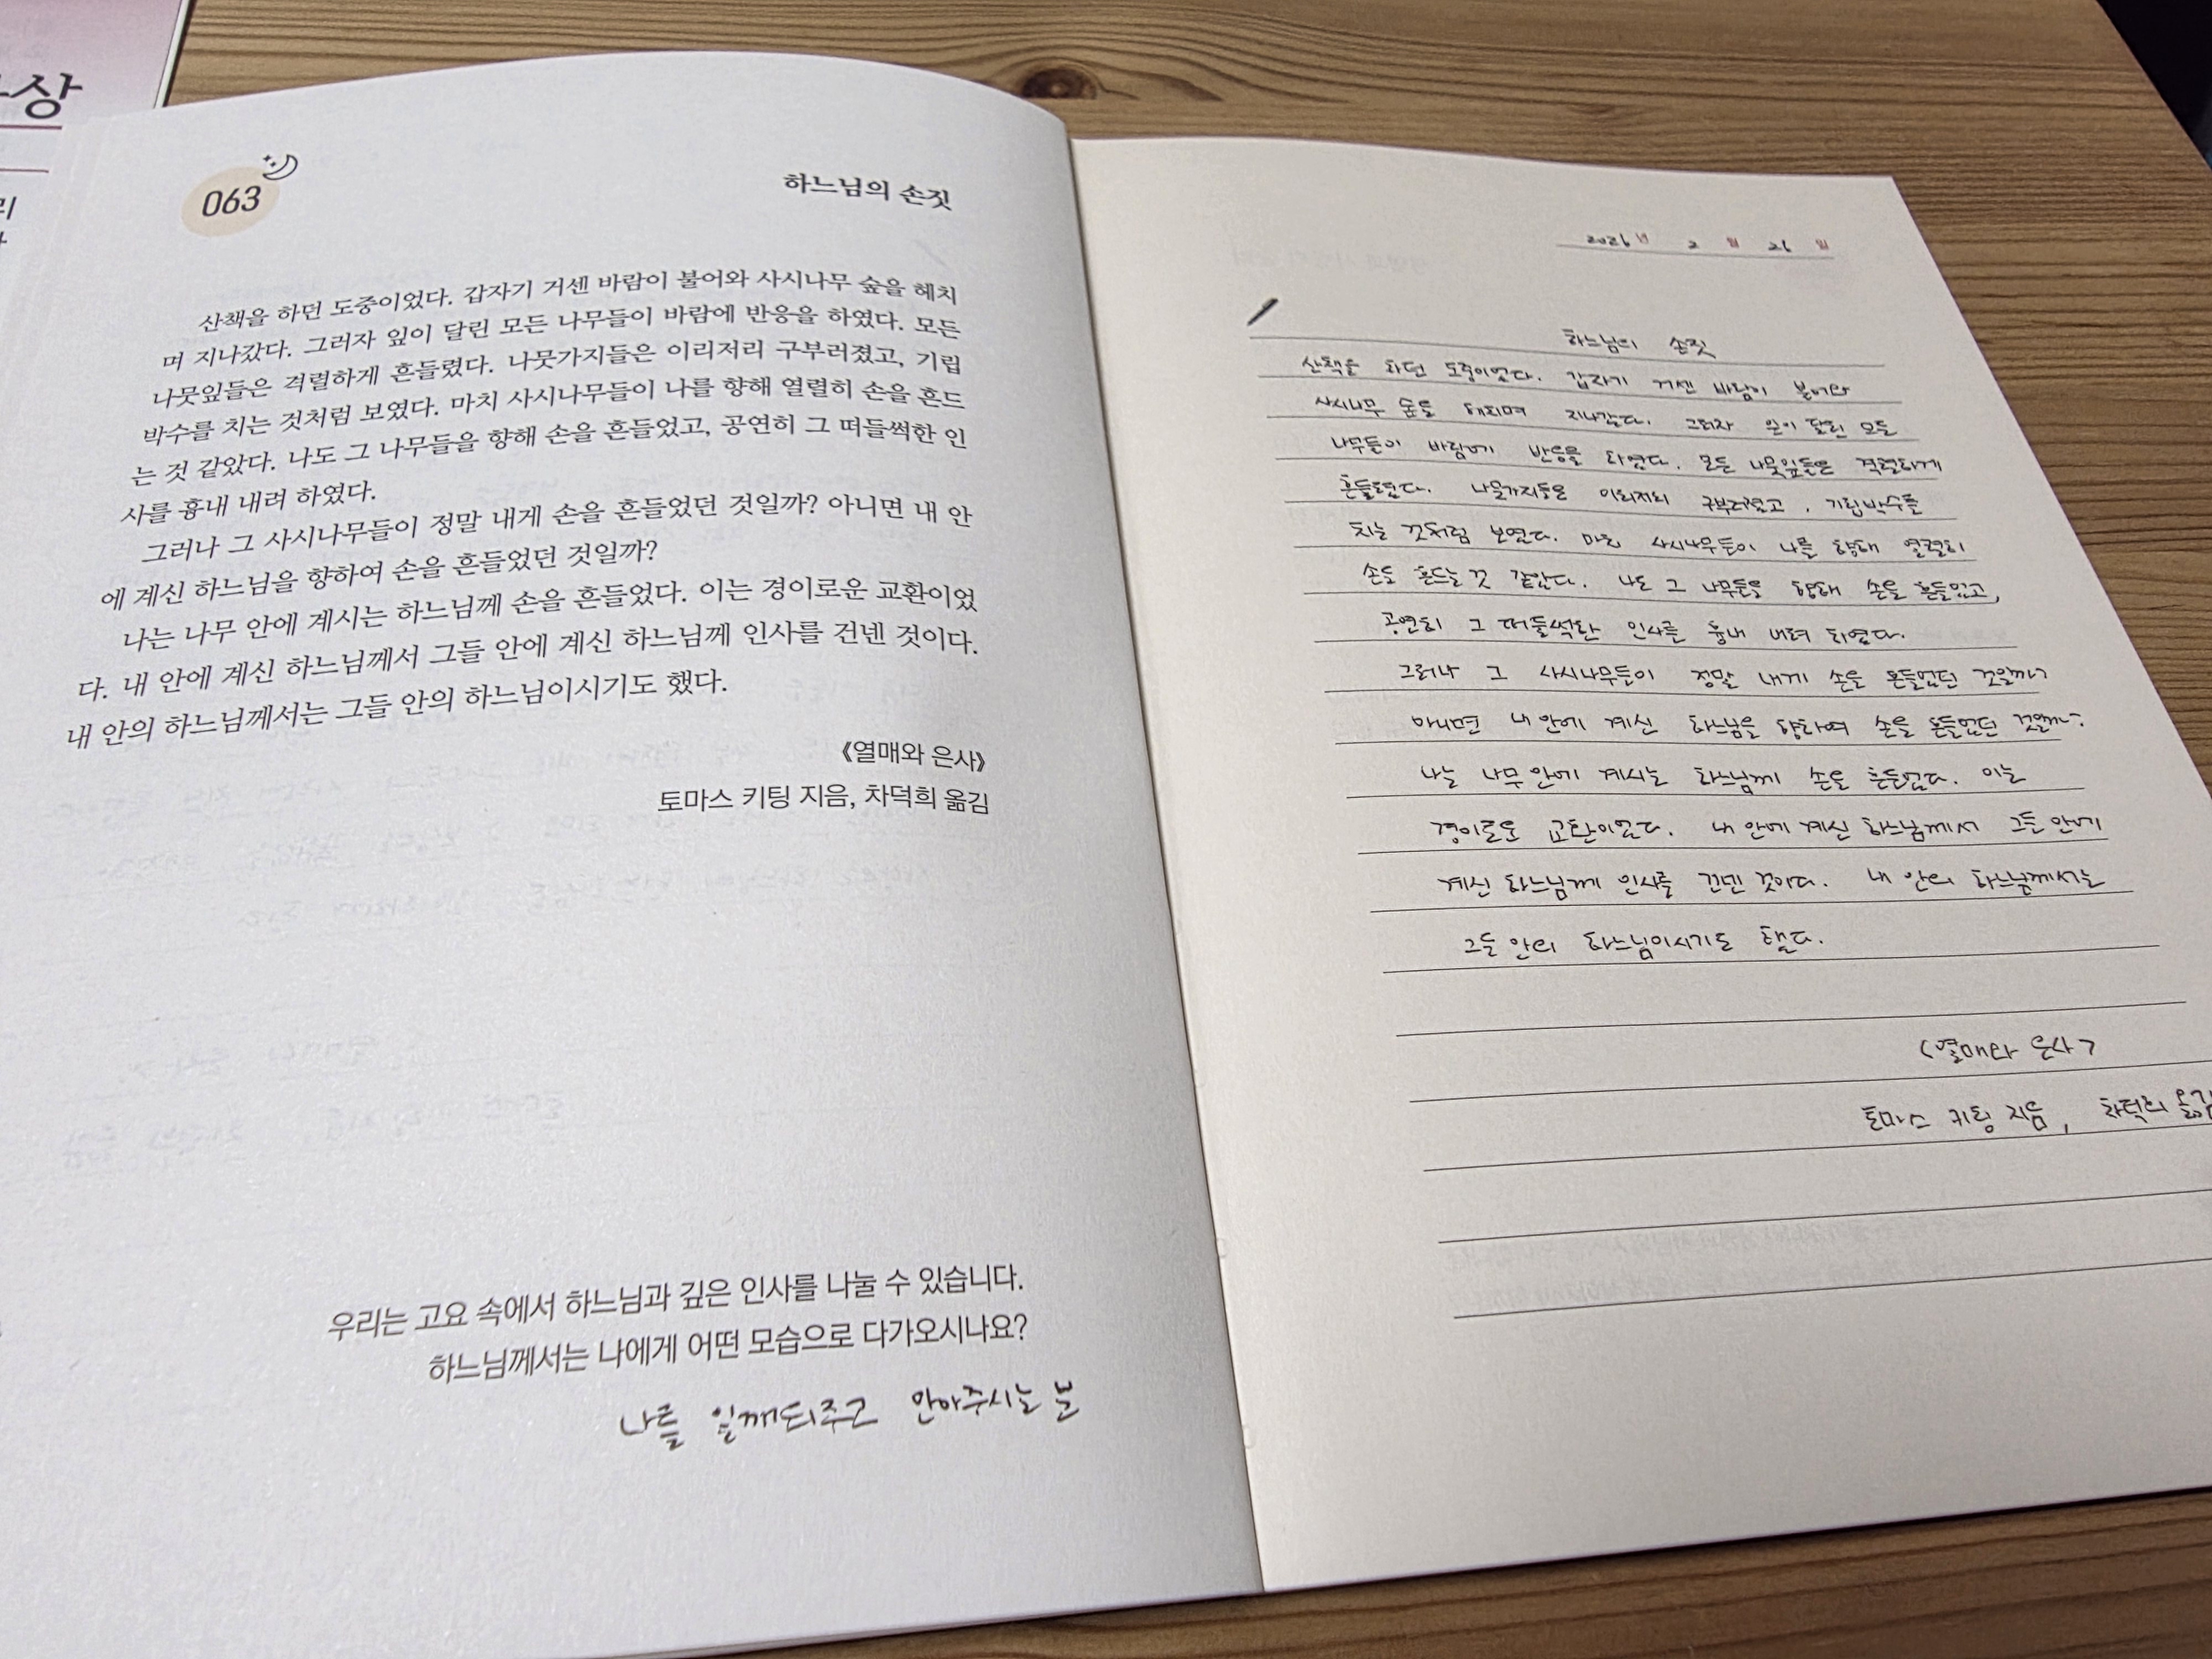 상
063
하느님의 손짓
산책을 하던 도중이었다. 갑자기 거센 바람이 불어와 사시나무 숲을 헤치
며 지나갔다. 그러자 잎이 달린 모든 나무들이 바람에 반응을 하였다. 모든
나뭇잎들은 격렬하게 흔들렸다. 나뭇가지들은 이리저리 구부러졌고, 기립
박수를 치는 것처럼 보였다. 마치 사시나무들이 나를 향해 열렬히 손을 흔드
는 것 같았다. 나도 그 나무들을 향해 손을 흔들었고, 공연히 그 떠들썩한 인
사를 흉내 내려 하였다.
그러나 그 사시나무들이 정말 내게 손을 흔들었던 것일까? 아니면 내 안
에 계신 하느님을 향하여 손을 흔들었던 것일까?
나는 나무 안에 계시는 하느님께 손을 흔들었다. 이는 경이로운 교환이었
다. 내 안에 계신 하느님께서 그들 안에 계신 하느님께 인사를 건넨 것이다.
내 안의 하느님께서는 그들 안의 하느님이시기도 했다.
《열매와 은사》
토마스 키팅 지음, 차덕희 옮김
우리는 고요 속에서 하느님과 깊은 인사를 나눌 수 있습니다.
하느님께서는 나에게 어떤 모습으로 다가오시나요?
나를 일깨워주고 안아주시는 분
2026년 2월 26일
하느님의 손짓
산책을 하던 도중이었다. 갑자기 거센 바람이 불어와
사시나무 숲을 헤치며 지나갔다. 그러자 잎이 달린 모든
나무들이 바람에 반응을 하였다. 모든 나뭇잎들은 격렬하게
흔들렸다. 나뭇가지들은 이리저리 구부러졌고, 기립박수를
치는 것처럼 보였다. 마치 사시나무들이 나를 향해 열렬히
손을 흔드는 것 같았다. 나도 그 나무들을 향해 손을 흔들었고,
공연히 그 떠들썩한 인사를 흉내 내려 하였다.
그러나 그 사시나무들이 정말 내게 손을 흔들었던 것일까?
아니면 내 안에 계신 하느님을 향하여 손을 흔들었던 것일까?
나는 나무 안에 계시는 하느님께 손을 흔들었다. 이는
경이로운 교환이었다. 내 안에 계신 하느님께서 그들 안에
계신 하느님께 인사를 건넨 것이다. 내 안의 하느님께서는
그들 안의 하느님이시기도 했다.
<열매와 은사>
토마스 키팅 지음, 차덕희 옮김